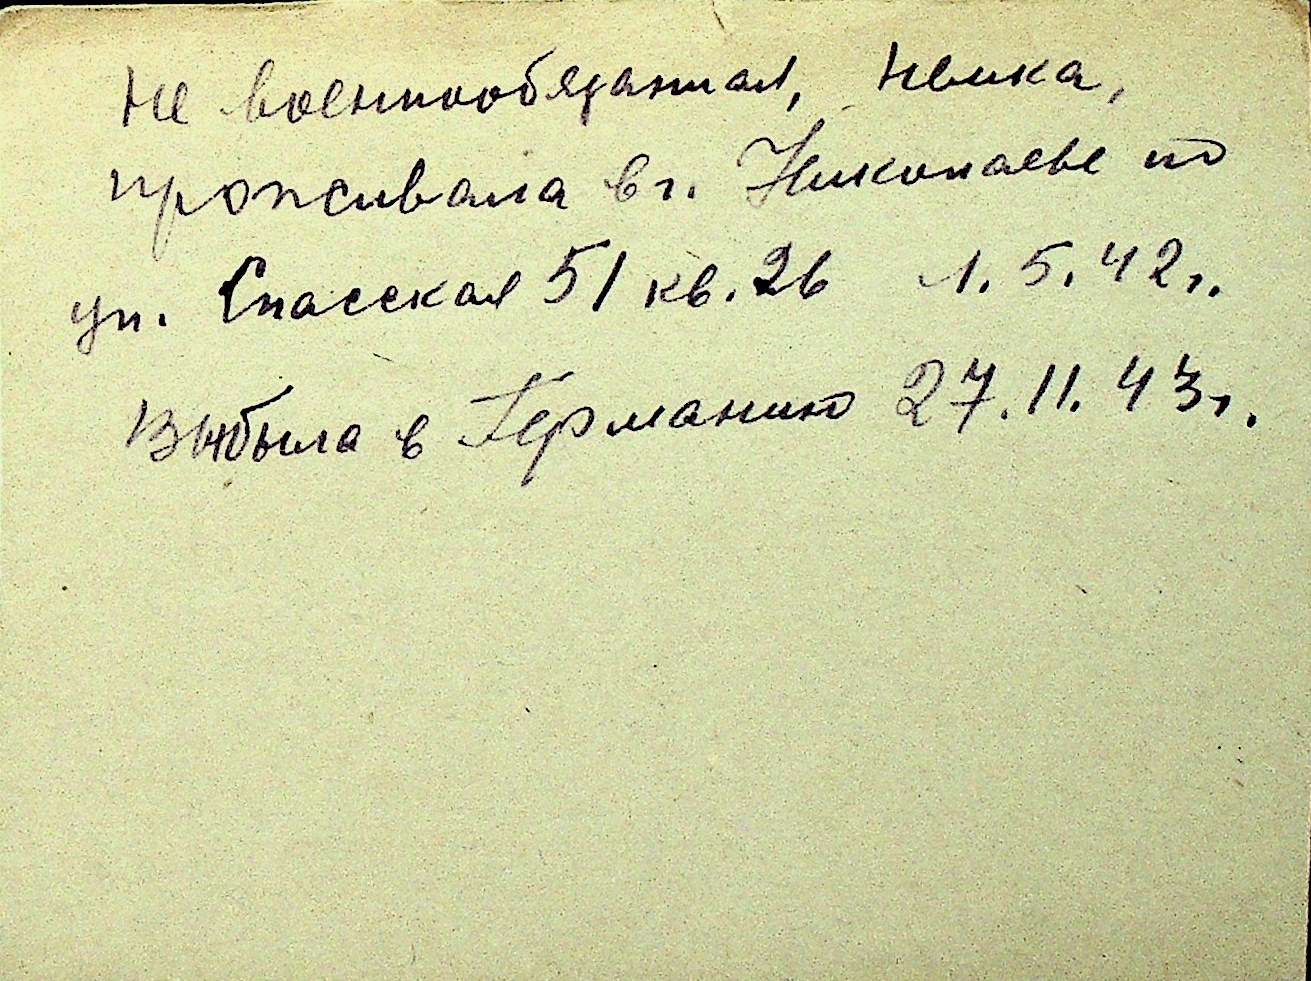 Не военнообязанная, немка,
проживала в г. Николаеве по
ул. Спасская 51 кв. 26 1. 5. 42 г.
Выбыла в Германию 27. 11. 43 г.